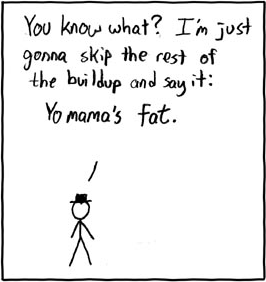 You know what? I'm just
gonna skip the rest of
the buildup and say it:
Yo mama's fat.